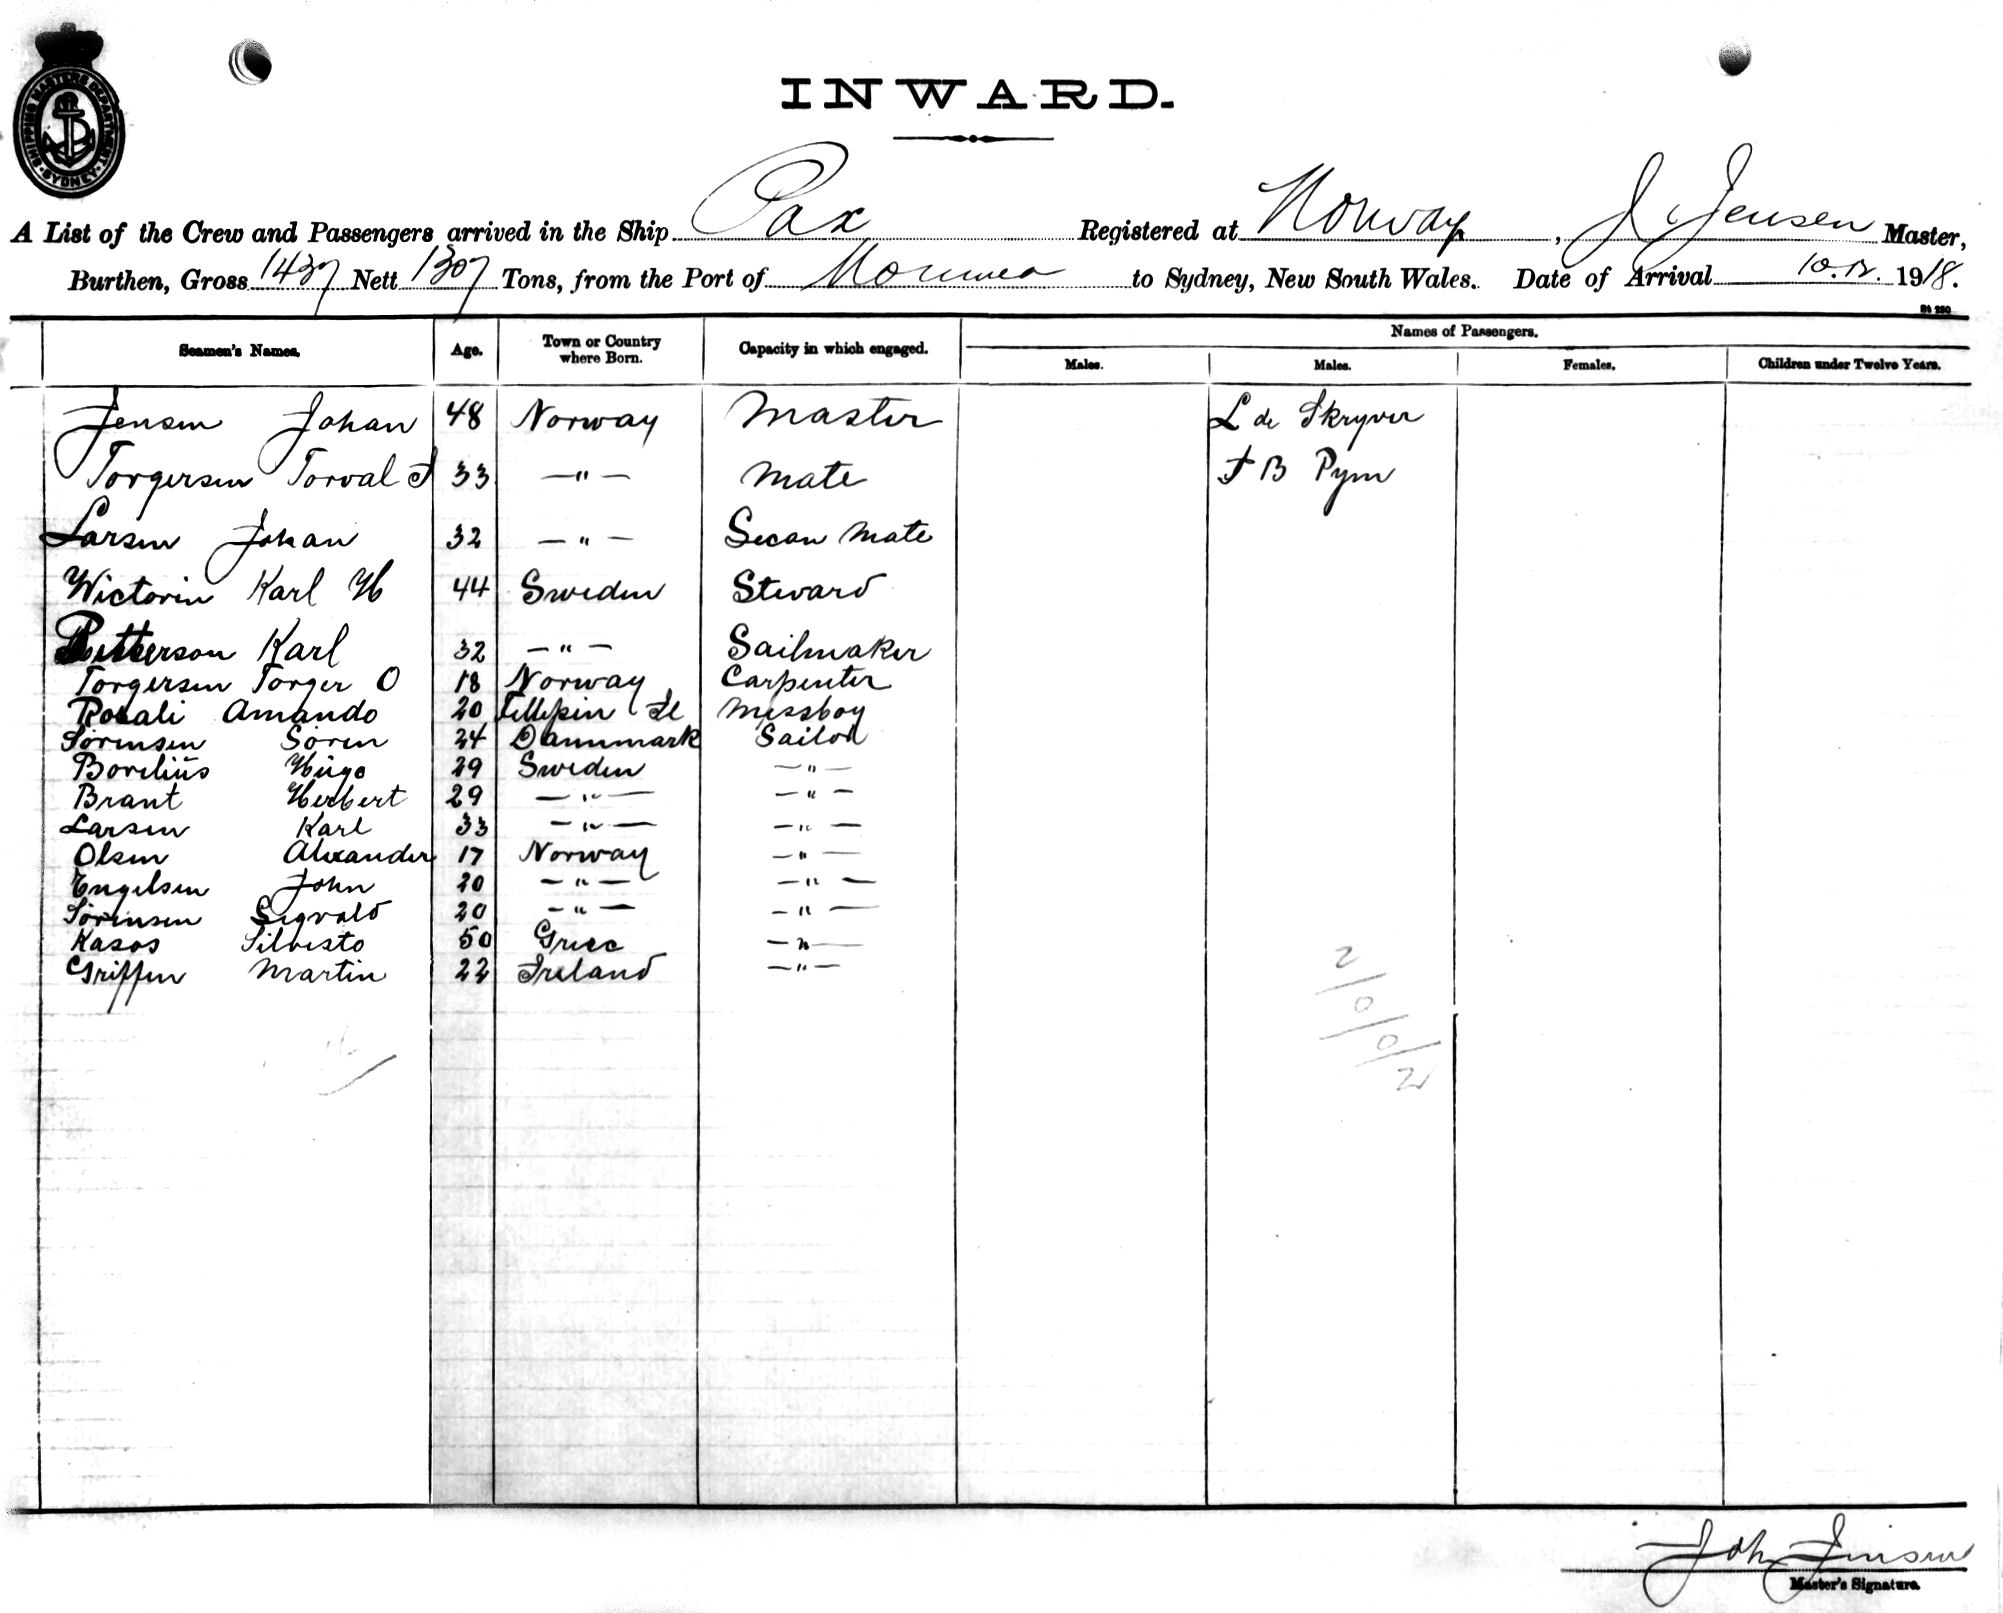 SHIPPING MASTERS DEPARTMENT
SYDNEY
INWARD.
A List of the Crew and Passengers arrived in the Ship Pax Registered at Norway, J Jensen Master,
Burthen, Gross 1437 Nett 1307 Tons, from the Port of to Sydney, New South Wales. Date of Arrival 10.12. 1918.
St 250
Seamen's Names. Age. Town or Country where Born. Capacity in which engaged. Names of Passengers.
Males. Males. Females. Children under Twelve Years.
Jensen Johan 48 Norway Master L de Skryver
Torgersen Torval J 33 —"— Mate F B Pym
Larsen Johan 32 —"— Secan Mate
Wictorin Karl H 44 Sweden Steward
Petterson Karl 32 —"— Sailmaker
Torgersen Torger O 18 Norway Carpenter
Rosali Amando 20 Fillipin Il Messboy
Sörensen Sören 24 Dannmark Sailor
Borelius Hugo 29 Sweden —"—
Brant Herbert 29 —"— —"—
Larsen Karl 33 —"— —"—
Olsen Alexander 17 Norway —"—
Engelsen John 20 —"— —"—
Sörensen Sigvald 20 —"— —"—
Kasos Silvesto 50 Griec —"—
Griffen Martin 22 Ireland —"—
2/0/0/2
16
Joh Jensen
Master's Signature.